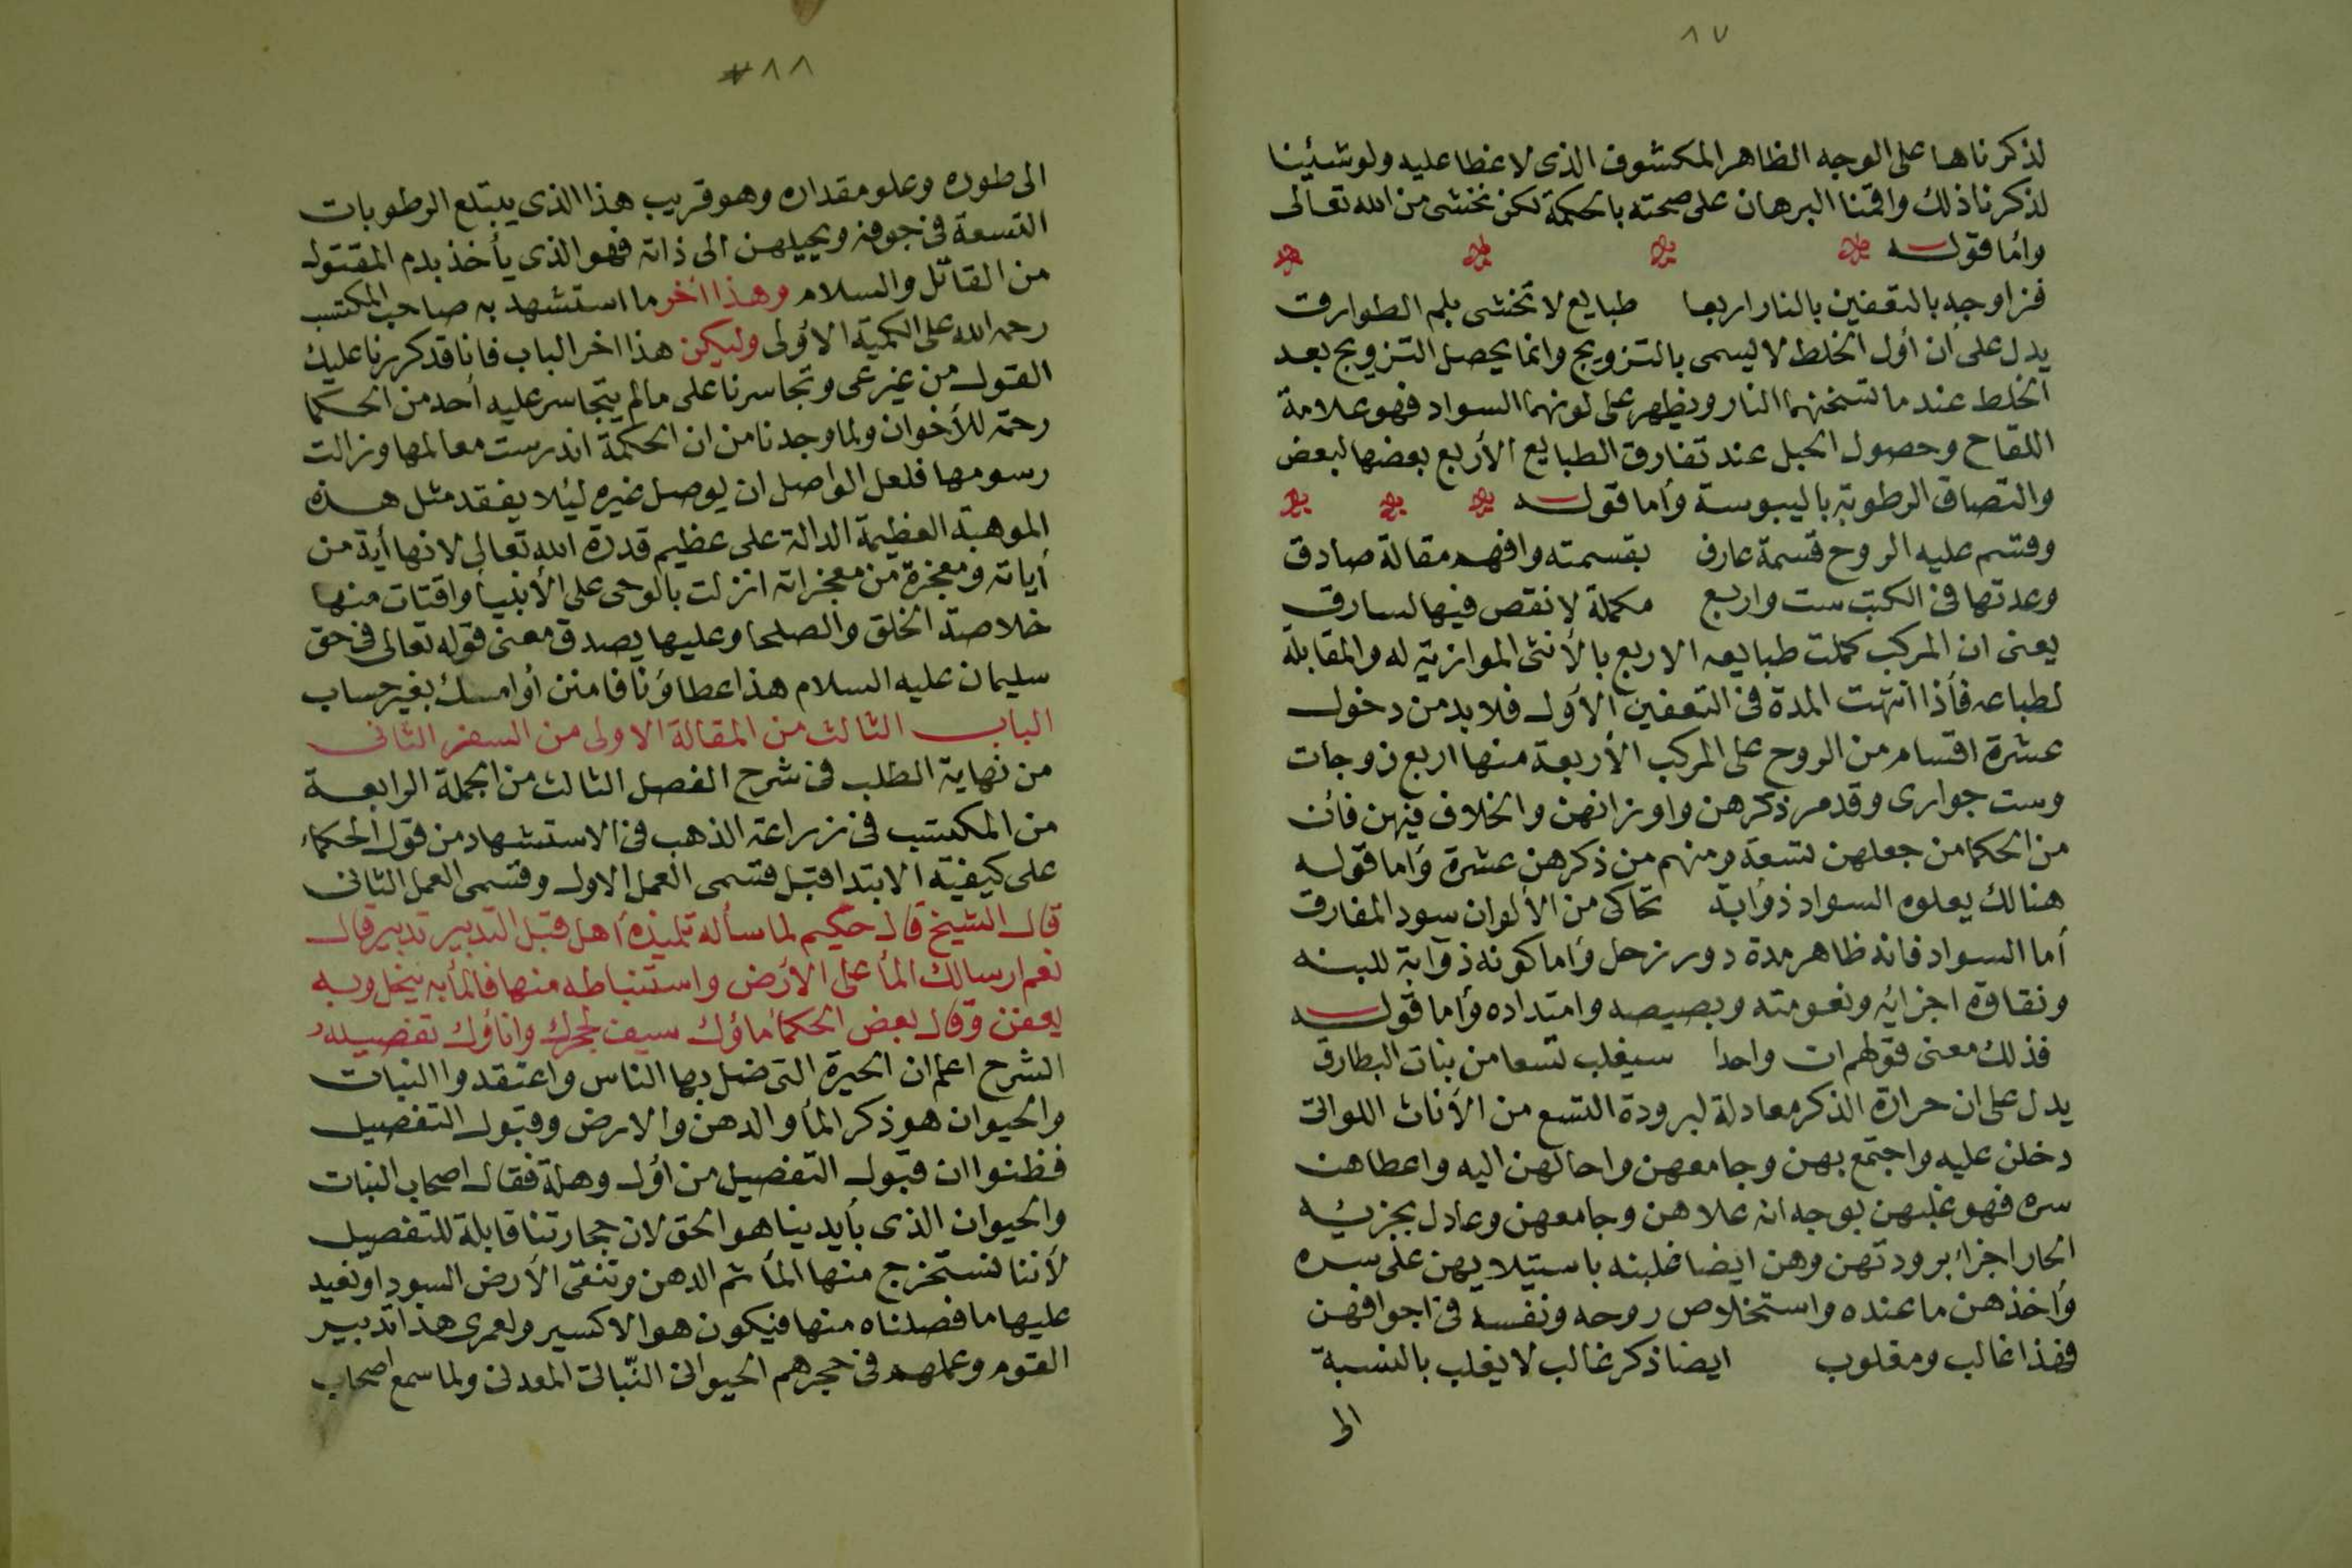 ٨٧
لذكرناها على الوجه الظاهر المكشوف الذى لا غطا عليه ولو شئينا
لذكرنا ذلك واقمنا البرهان على صحته بالحكمة لكن نخشى من الله تعالى
واما قوله
فزاوجه بالتعفين بالنار اربعا طبايع لا تخشى بلم الطوارق
يدل على أن أول الخلط لا يسمى بالتزويج وانما يحصل التزويج بعد
الخلط عند ما تسخنهما النار ويظهر على لونهما السواد فهو علامة
اللقاح وحصول الحبل عند تفارق الطبايع الأربع بعضها لبعض
والتصاق الرطوبة باليبوسة وأما قوله
وقسم عليه الروح قسمة عارف بقسمته وافهم مقالة صادق
وعدتها فى الكتب ست واربع مكملة لا نقص فيها لسارق
يعنى ان المركب كملت طبايعه الاربع بالأنثى الموازية له والمقابلة
لطباعه فأذا انتهت المدة فى التعفين الأول فلا بد من دخول
عشرة اقسام من الروح على المركب الأربعة منها اربع زوجات
وست جوارى وقد مر ذكرهن واوزانهن والخلاف فيهن فأن
من الحكما من جعلهن تسعة ومنهم من ذكرهن عشرة وأما قوله
هنالك يعلوه السواد ذؤابة تحاكى من الألوان سود المفارق
أما السواد فانه ظاهر مدة دور زحل وأما كونه ذوابة للينه
ونقاوة اجزائه ونعومته وبصيصه وامتداده وأما قوله
فذلك معنى قولهم ان واحدا سيغلب تسعا من بنات البطارق
يدل على ان حرارة الذكر معادلة لبرودة التسع من الأناث اللواتى
دخلن عليه واجتمع بهن وجامعهن واحالهن اليه واعطاهن
سره فهو غلبهن بوجه انه علاهن وجامعهن وعادل بجزئيه
الحار اجزاء برودتهن وهن ايضا غلبنه باستيلايهن على سره
وأخذهن ما عنده واستخلاص روحه ونفسه فى اجوافهن
فهذا غالب ومغلوب ايضا ذكر غالب لا يغلب بالنسبة
الى
٨٨
الى طوره وعلو مقداره وهو قريب هذا الذى يبتلع الرطوبات
التسعة فى جوفه ويحيلهن الى ذاته فهو الذى يأخذ بدم المقتول
من القاتل والسلام وهذا أخر ما استشهد به صاحب المكتسب
رحمه الله على الكمية الاؤلى وليكن هذا اخر الباب فانا قد كررنا عليك
القول من غير عى وتجاسرنا على مالم يتجاسر عليه أحد من الحكما
رحمة للأخوان ولما وجدنا من ان الحكمة اندرست معالمها وزالت
رسومها فلعل الواصل ان يوصل غيره ليئلا يفقد مثل هذه
الموهبة العظيمة الدالة على عظيم قدرة الله تعالى لانها أية من
أياته ومعجزة من معجزاته انزلت بالوحى على الأنبيا واقتات منها
خلاصة الخلق والصلحا وعليها يصدق معنى قوله تعالى فى حق
سليمان عليه السلام هذا عطاؤنا فامنن أوامسك بغير حساب
الباب الثالث من المقالة الاولى من السفر الثانى
من نهاية الطلب فى شرح الفصل الثالث من الجملة الرابعة
من المكتسب فى زراعة الذهب فى الاستشهاد من قول الحكماء
على كيفية الابتدا قبل قسمى العمل الاول وقسمى العمل الثانى
قال الشيخ قال حكيم لما سأله تلميذه أهل قبل التدبير تدبير قال
نعم ارسالك المأ على الأرض واستنباطه منها فالمأ به ينخل وبه
يعفن وقال بعض الحكما ماؤك سيف لحجرك واناؤك تفصيله
الشرح اعلم ان الحيرة التى ضل بها الناس واعتقدوا النبات
والحيوان هو ذكر المأ والدهن والارض وقبول التفصيل
فظنوا ان قبول التفصيل من اؤل وهلة فقال اصحاب النبات
والحيوان الذى بأيدينا هو الحق لان حجارتنا قابلة للتفصيل
لأننا نستخرج منها المأ ثم الدهن وننقى الأرض السودا ونعيد
عليها ما فصلناه منها فيكون هو الاكسير ولعمرى هذا تدبير
القوم وعملهم فى حجرهم الحيوانى النّباتى المعدنى ولما سمع اصحاب